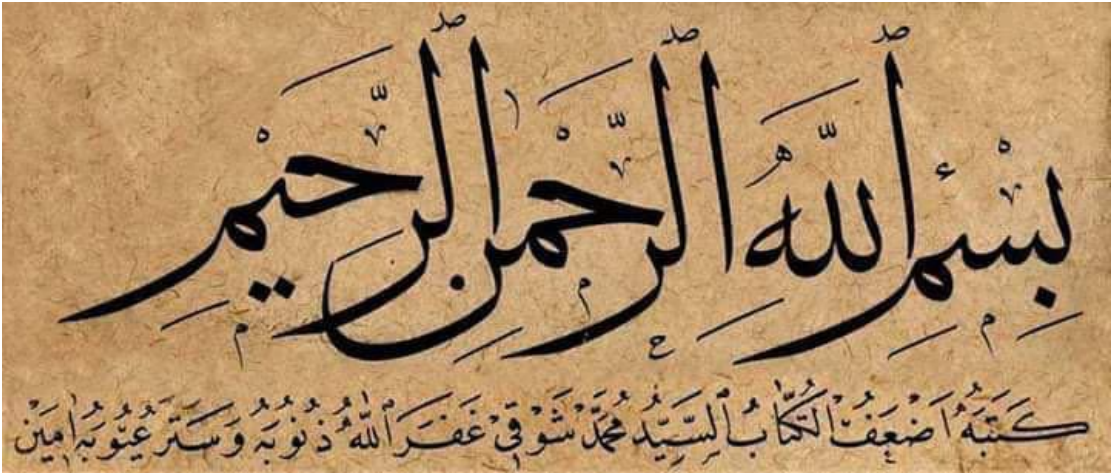 بِسْمِ ٱللّٰهِ ٱلرَّحْمٰنِ ٱلرَّحِيْمِ
كَتَبَهُ اَضْعَفُ الْكُتَّابُ ٱلسَّيِّدُ مُحَمَّدْ شَوْقِيْ غَفَرَ ٱللّٰهُ ذُنُوبَهُ وَسَتَرَ عُيُوبَهُ اٰمِيْن